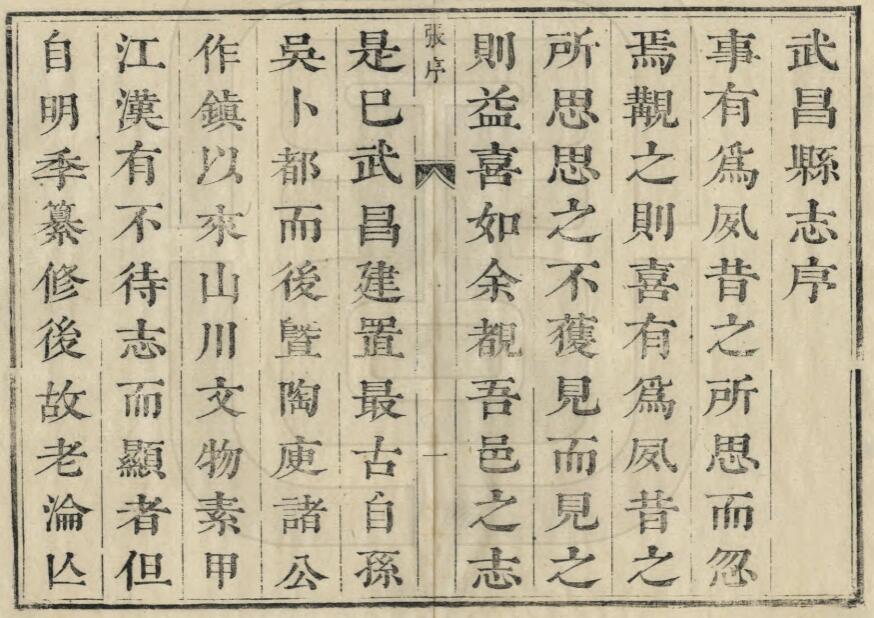 武昌縣志序
事有爲夙昔之所思而忽
焉覯之則喜有爲夙昔之
所思思之不獲見而見之
則益喜如余覩吾邑之志
張序
一
是已武昌建置最古自孫
吳卜都而後曁陶庾諸公
作鎭以來山川文物素甲
江漢有不待志而顯者但
自明季纂修後故老淪亾